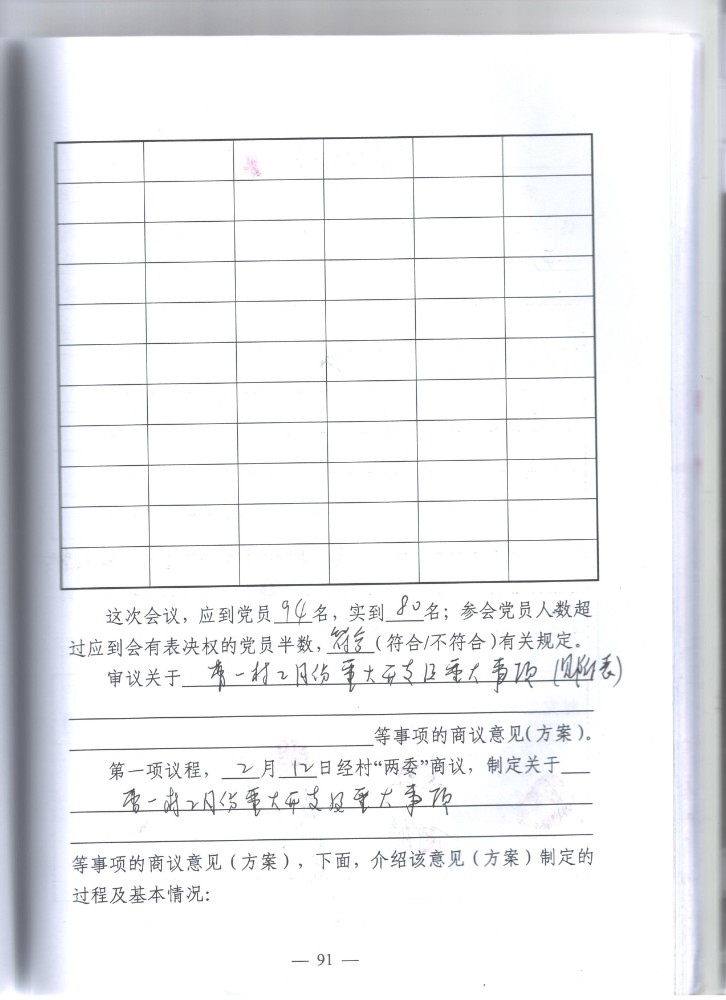 这次会议，应到党员94名，实到80名；参会党员人数超
过应到会有表决权的党员半数，符合(符合/不符合)有关规定。
审议关于 一村2月份重大开支及重大事项(见附表)
等事项的商议意见(方案)。
第一项议程，2月12日经村“两委”商议，制定关于
一村2月份重大开支及重大事项
等事项的商议意见(方案)，下面，介绍该意见(方案)制定的
过程及基本情况：
— 91 —